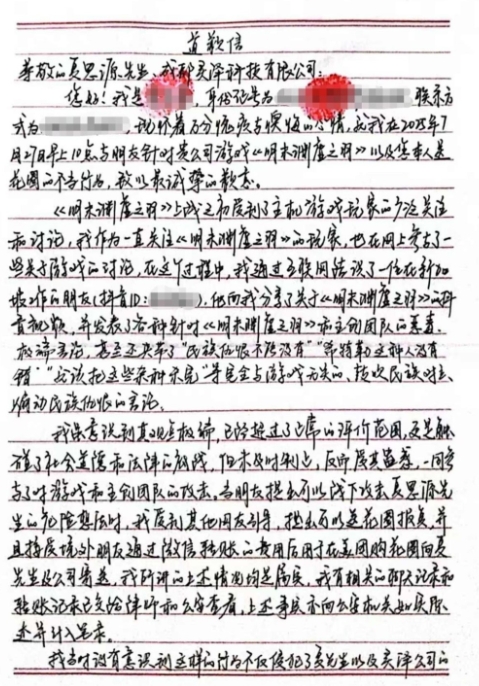 道歉信
尊敬的夏思源先生、成都灵泽科技有限公司:
您好!我是 ,身份证号为 联系方
式为 ,现怀着万分愧疚与懊悔的心情,就我在2025年7
月27日早上10点与朋友针对贵公司游戏《明末渊虚之羽》以及您本人送
花圈的不当行为,致以最诚挚的歉意。
《明末渊虚之羽》上线之初受到了主机游戏玩家的广泛关注
和讨论,我作为一直关注《明末渊虚之羽》的玩家,也在网上参与了一
些关于游戏的讨论,在这个过程中,我通过互联网结识了一位在新加
坡工作的朋友(抖音ID: ),他向我分享了关于《明末渊虚之羽》的抖
音视频,并发表了各种针对《明末渊虚之羽》和主创团队的恶毒、
极端言论,甚至还夹带了“民族仇恨不能没有”“希特勒这种人没有
错”“应该把这些杂种杀完”等完全与游戏无关的、挑吹民族对立、
煽动民族仇恨的言论。
我虽意识到其观点极端,已经超过了正常的评价范围,更是触
碰了社会道德和法律的底线,但未及时制止,反而受其蛊惑,一同参
与了对游戏和主创团队的攻击,当朋友提出可以线下攻击夏思源先
生的危险想法时,我受到其他网友引导,提出可以送花圈报复,并
且接受境外朋友通过微信转账的费用后用于在美团购花圈向夏
先生及公司寄送,我所讲的上述情况均是属实,我有相关的聊天记录和
转账记录已交给律师和公安查看,上述事实亦向公安机关如实陈
述并计入笔录。
我当时没有意识到这样的行为不仅侵犯了夏先生以及灵泽公司的